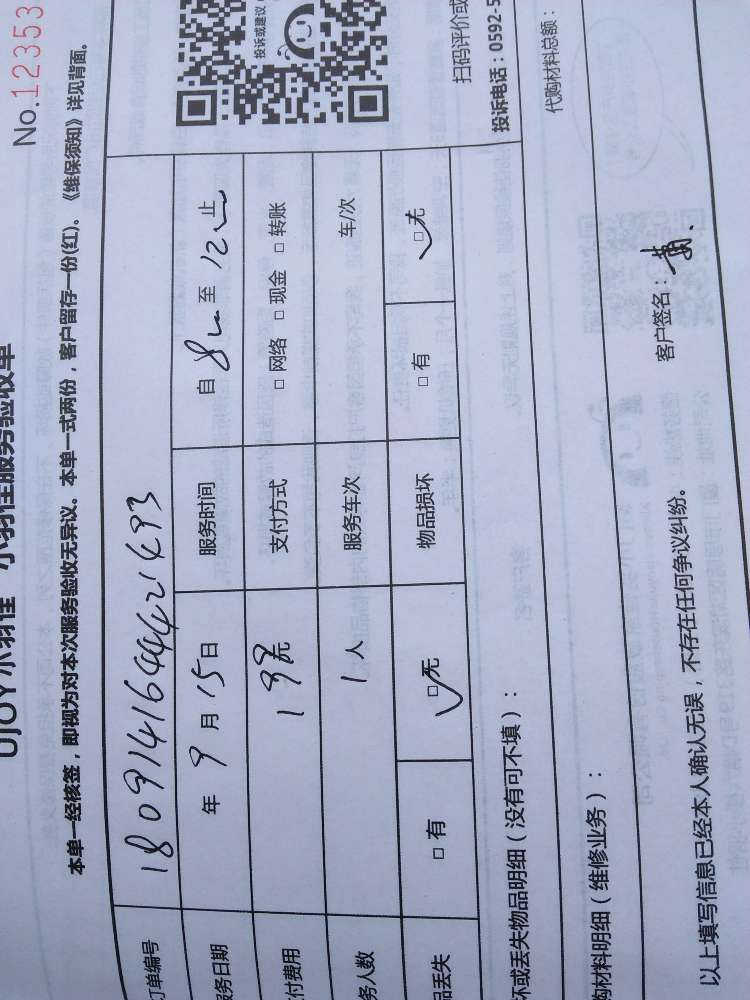 No.12353
UJOY小羽佳 小羽佳服务验收单
本单一经核签，即视为对本次服务验收无异议。本单一式两份，客户留存一份(红)、《维保须知》详见背面。
订单编号 1809141644421493
服务日期 年 9 月 15 日 服务时间 自 8 至 12 止
付费用 198元 支付方式 □ 网络 □ 现金 □ 转账
务人数 1 人 服务车次 车/次
品丢失 □ 有 □ 无 物品损坏 □ 有 □ 无
投诉或建议
扫码评价或
投诉电话：0592-5
坏或丢失物品明细（没有可不填）：
购材料明细（维修业务）：
代购材料总额：
以上填写信息已经本人确认无误，不存在任何争议纠纷。
客户签名：